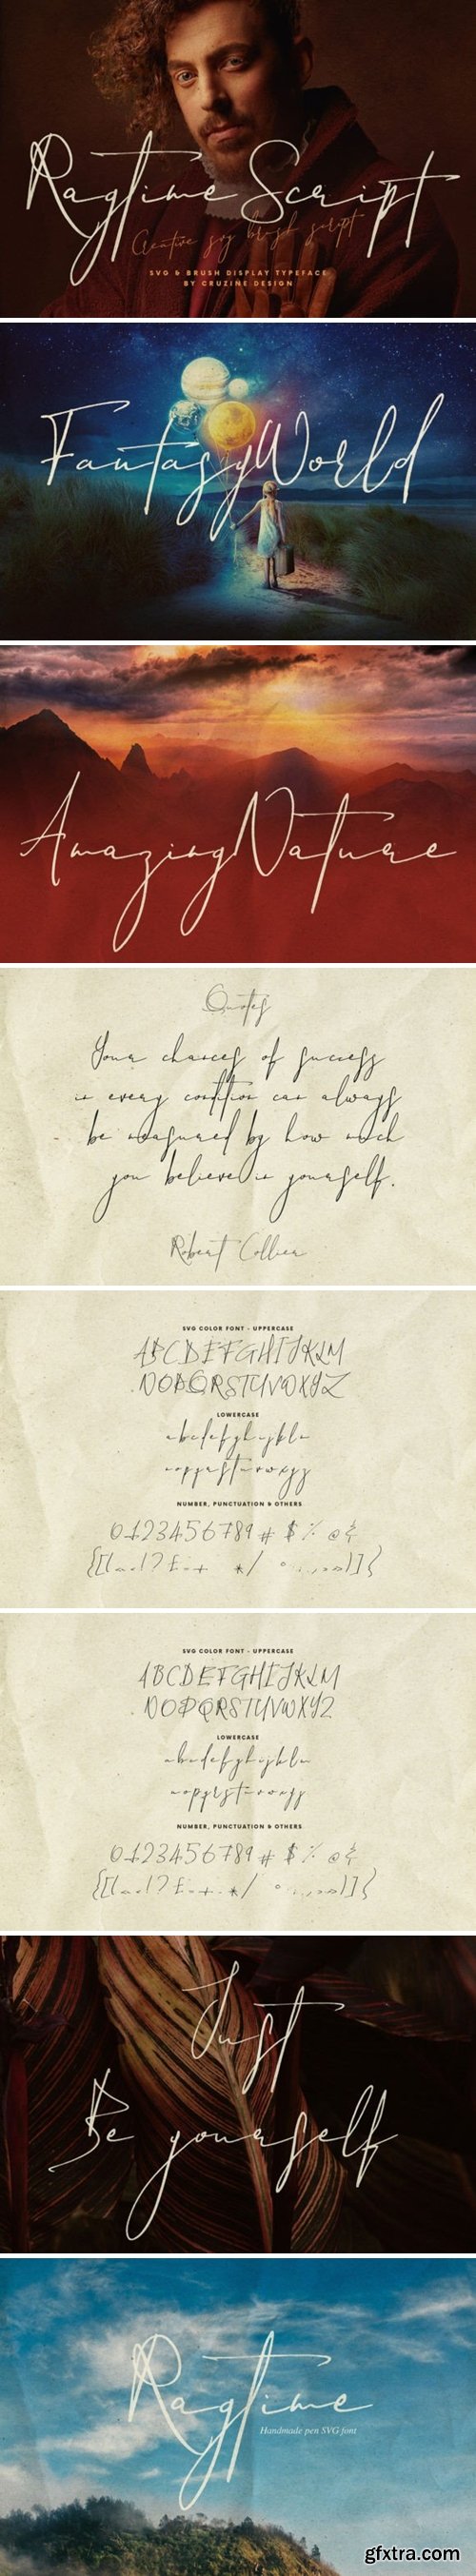 Ragtime Script
Creative svg brush script
SVG & BRUSH DISPLAY TYPEFACE
BY CRUZINE DESIGN
Fantasy World
Amazing Nature
Quotes
Your chances of success
in every condition can always
be measured by how much
you believe in yourself.
Robert Collier
SVG COLOR FONT - UPPERCASE
ABCDEFGHIJKLM
NOPQRSTUVWXYZ
LOWERCASE
abcdefghijklm
nopqrstuvwxyz
NUMBER, PUNCTUATION & OTHERS
0123456789 # $ % @ &
SVG COLOR FONT - UPPERCASE
ABCDEFGHIJKLM
NOPQRSTUVWXYZ
LOWERCASE
abcdefghijklm
nopqrstuvwxyz
NUMBER, PUNCTUATION & OTHERS
0123456789 # $ % @ &
Just
Be yourself
Ragtime
Handmade pen SVG font
gfxtra.com